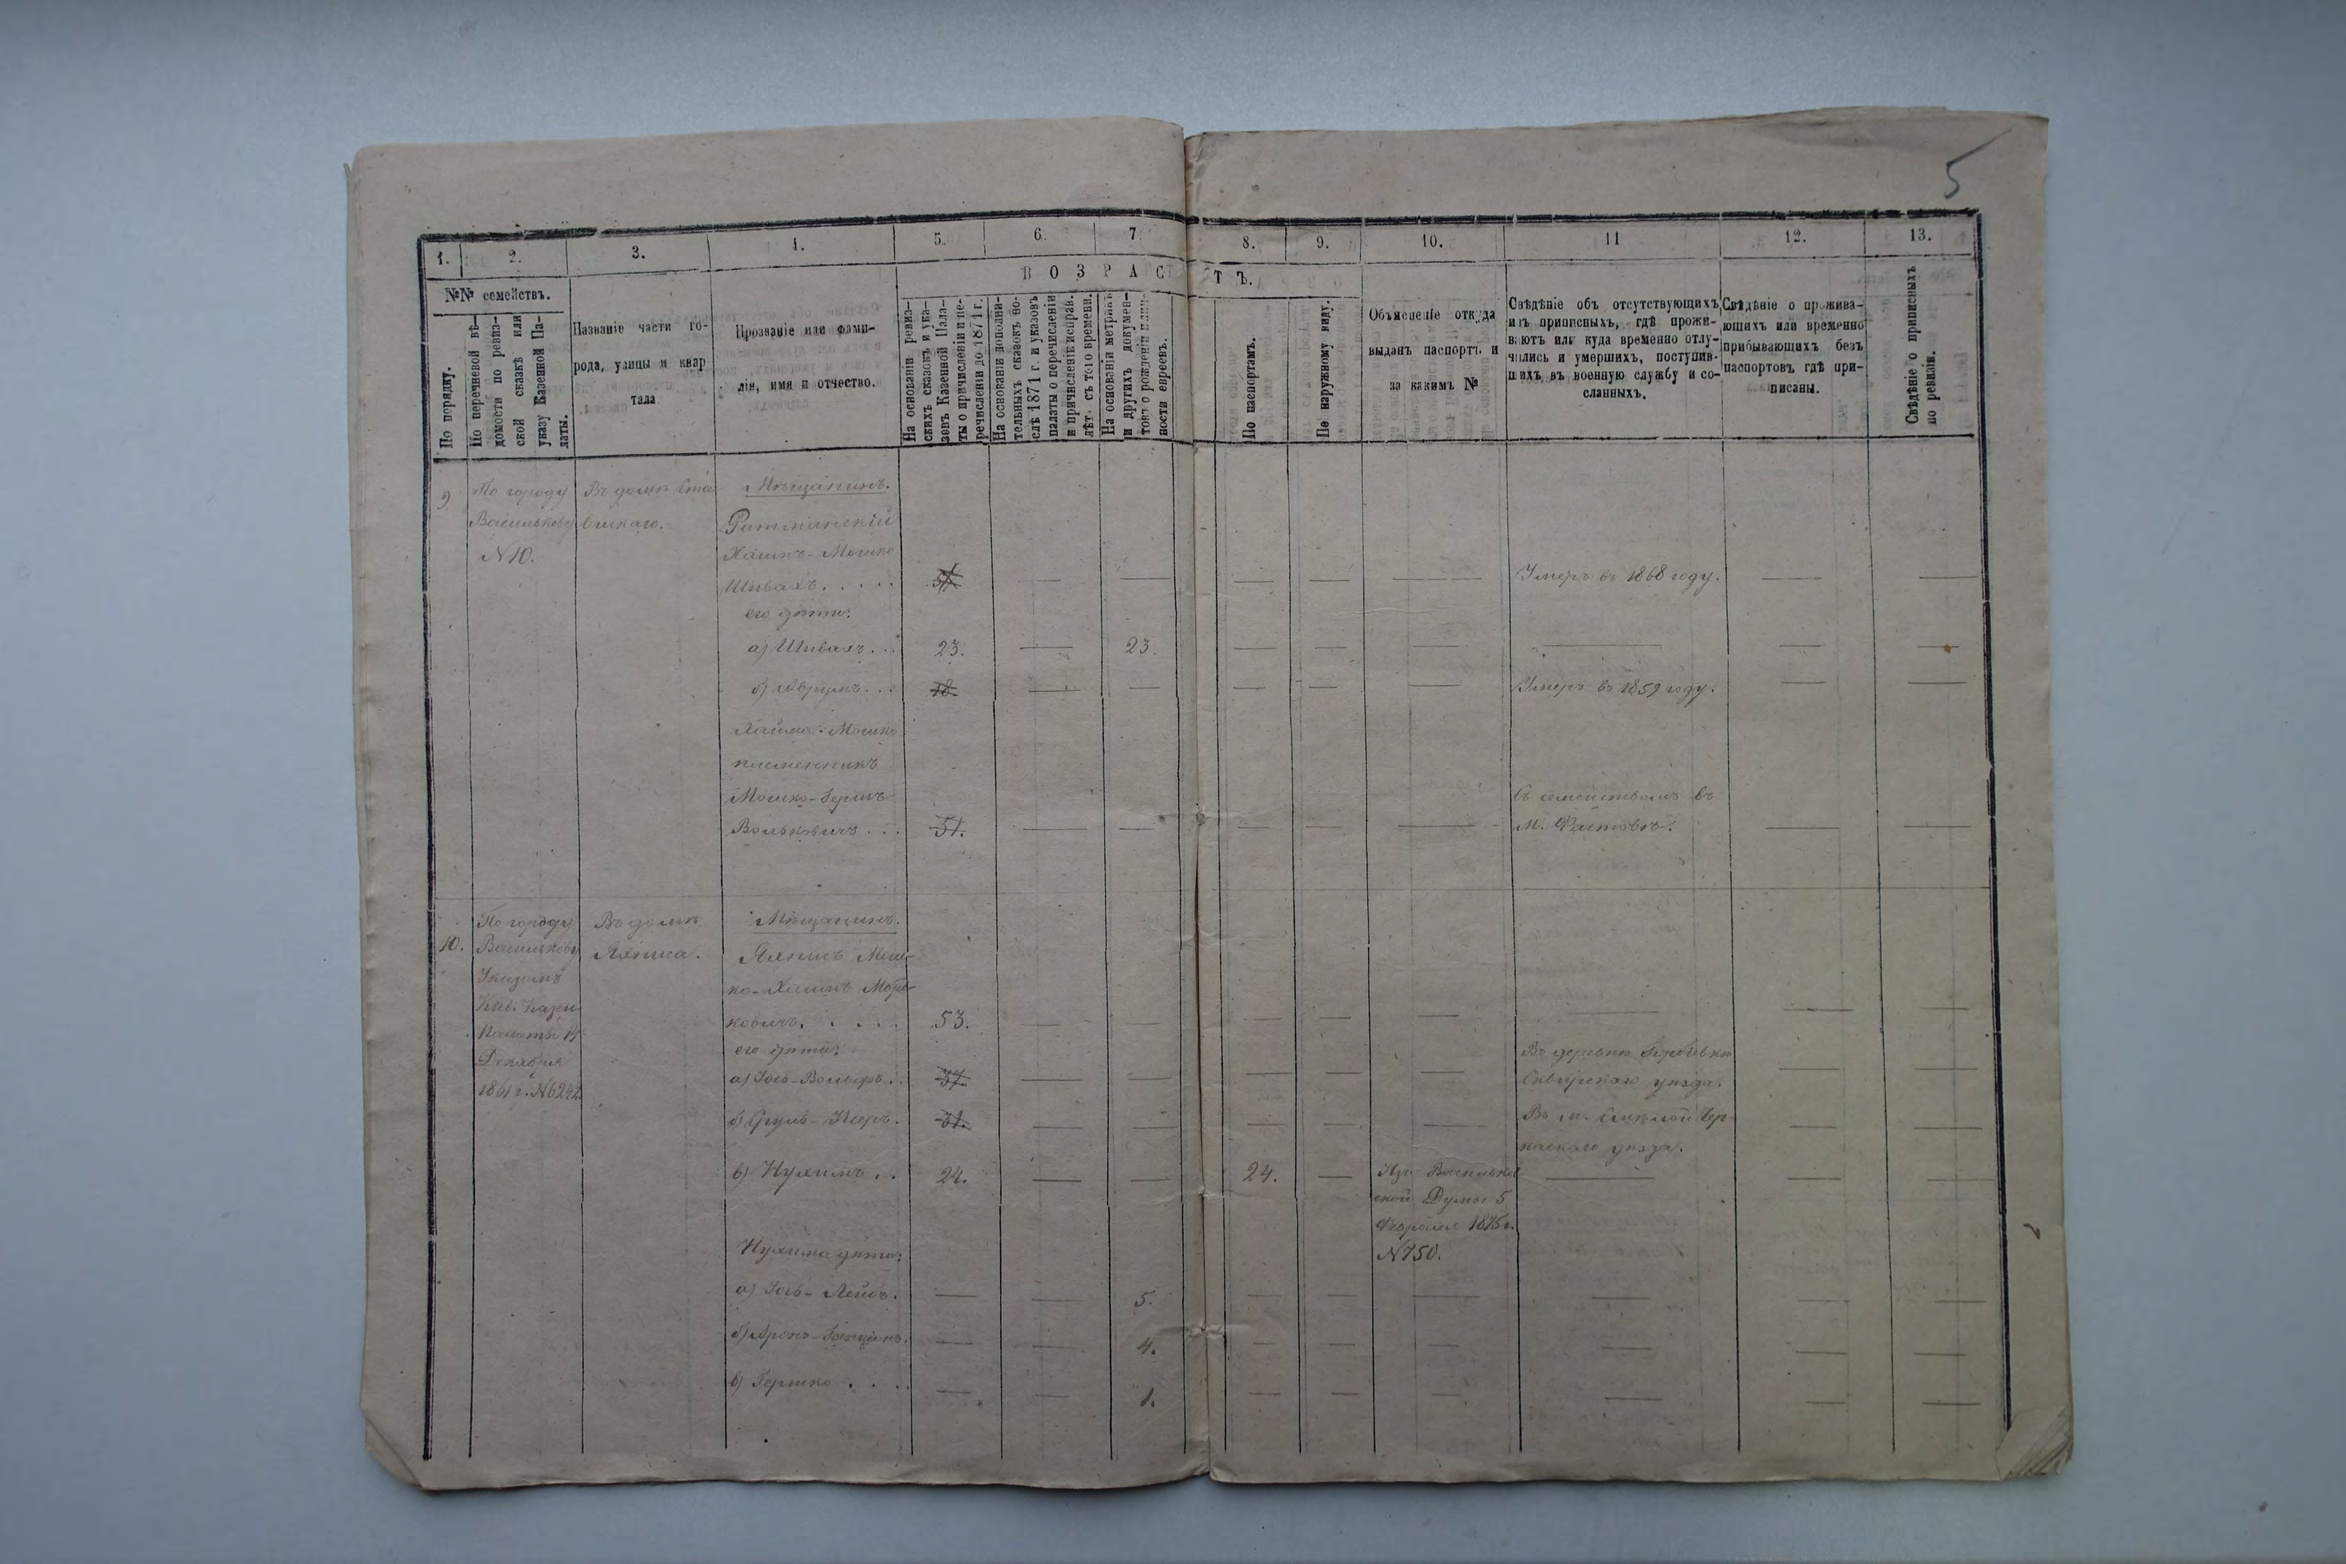 5
1.
2.
3.
4.
5.
6.
7.
8.
9.
10.
11
12.
13.
ВОЗРАСТЪ.
№№ семействъ.
По порядку.
По перечневой вѣ-
домости по ревиз-
ской сказкѣ или
указу Казенной Па-
латы.
Названіе части го-
рода, улицы и квар
тала
Прозваніе или фами-
лія, имя и отчество.
На основаніи ревиз-
скихъ сказокъ и ука-
зовъ Казенной Пала-
ты о причисленіи и пе-
речисленіи до 1871 г.
На основаніи дополни-
тельныхъ сказокъ по-
слѣ 1871 г. и указовъ
палаты о перечисленіи
и причисленіе исправ.
лѣт. съ того времени.
На основаніи метрикъ
и другихъ докумен-
товъ о рожденіи
ности евреевъ.
По паспортамъ.
По наружному виду.
Объясненіе откуда
выданъ паспортъ и
за какимъ №
Свѣдѣніе объ отсутствующихъ
изъ приписныхъ, гдѣ прожи-
ваютъ или куда временно отлу-
чились и умершихъ, поступив-
шихъ въ военную службу и со-
сланныхъ.
Свѣдѣніе о прожива-
ющихъ или временно
прибывающихъ безъ
паспортовъ гдѣ при-
писаны.
Свѣдѣніе о приписныхъ
по ревизіи.
9
По городу
Василькову
N 10.
Въ домѣ
Мѣщанинъ.
Хаимъ-Мошко
Шивахъ. . . . .
Умеръ въ 1868 году.
его дѣти:
а) Шивахъ. . . 23. 23.
б) Аврумъ. . . 18. Умеръ въ 1859 году.
Хаима-Мошко
племенникъ
Мошко-Берко
Вольковичъ . . . 51.
Съ семействомъ въ
М. Фастовѣ.
10.
По городу
Василькову
Указомъ
Кіев. Казен.
Палаты 15
Декабря
1861 г. N 6242
Въ домѣ
Ляписа.
Мѣщанинъ.
Ляписъ Мош-
ко-Хаимъ
ковичъ. . . . . 53.
его дѣти:
а) Іось-Вольфъ . . 37.
Въ деревнѣ
Сквирскаго уѣзда.
б) Сруль-Мееръ. 31.
Въ м. Смѣлой Чер-
каскаго уѣзда.
в) Нухимъ . . 24. 24.
Изъ Васильков
ской Думы 5
Февраля 1875 г.
N 750.
Нухима дѣти:
а) Іось-Лейбъ. 5.
б) Аронъ- 4.
в) Гершко . . . 1.